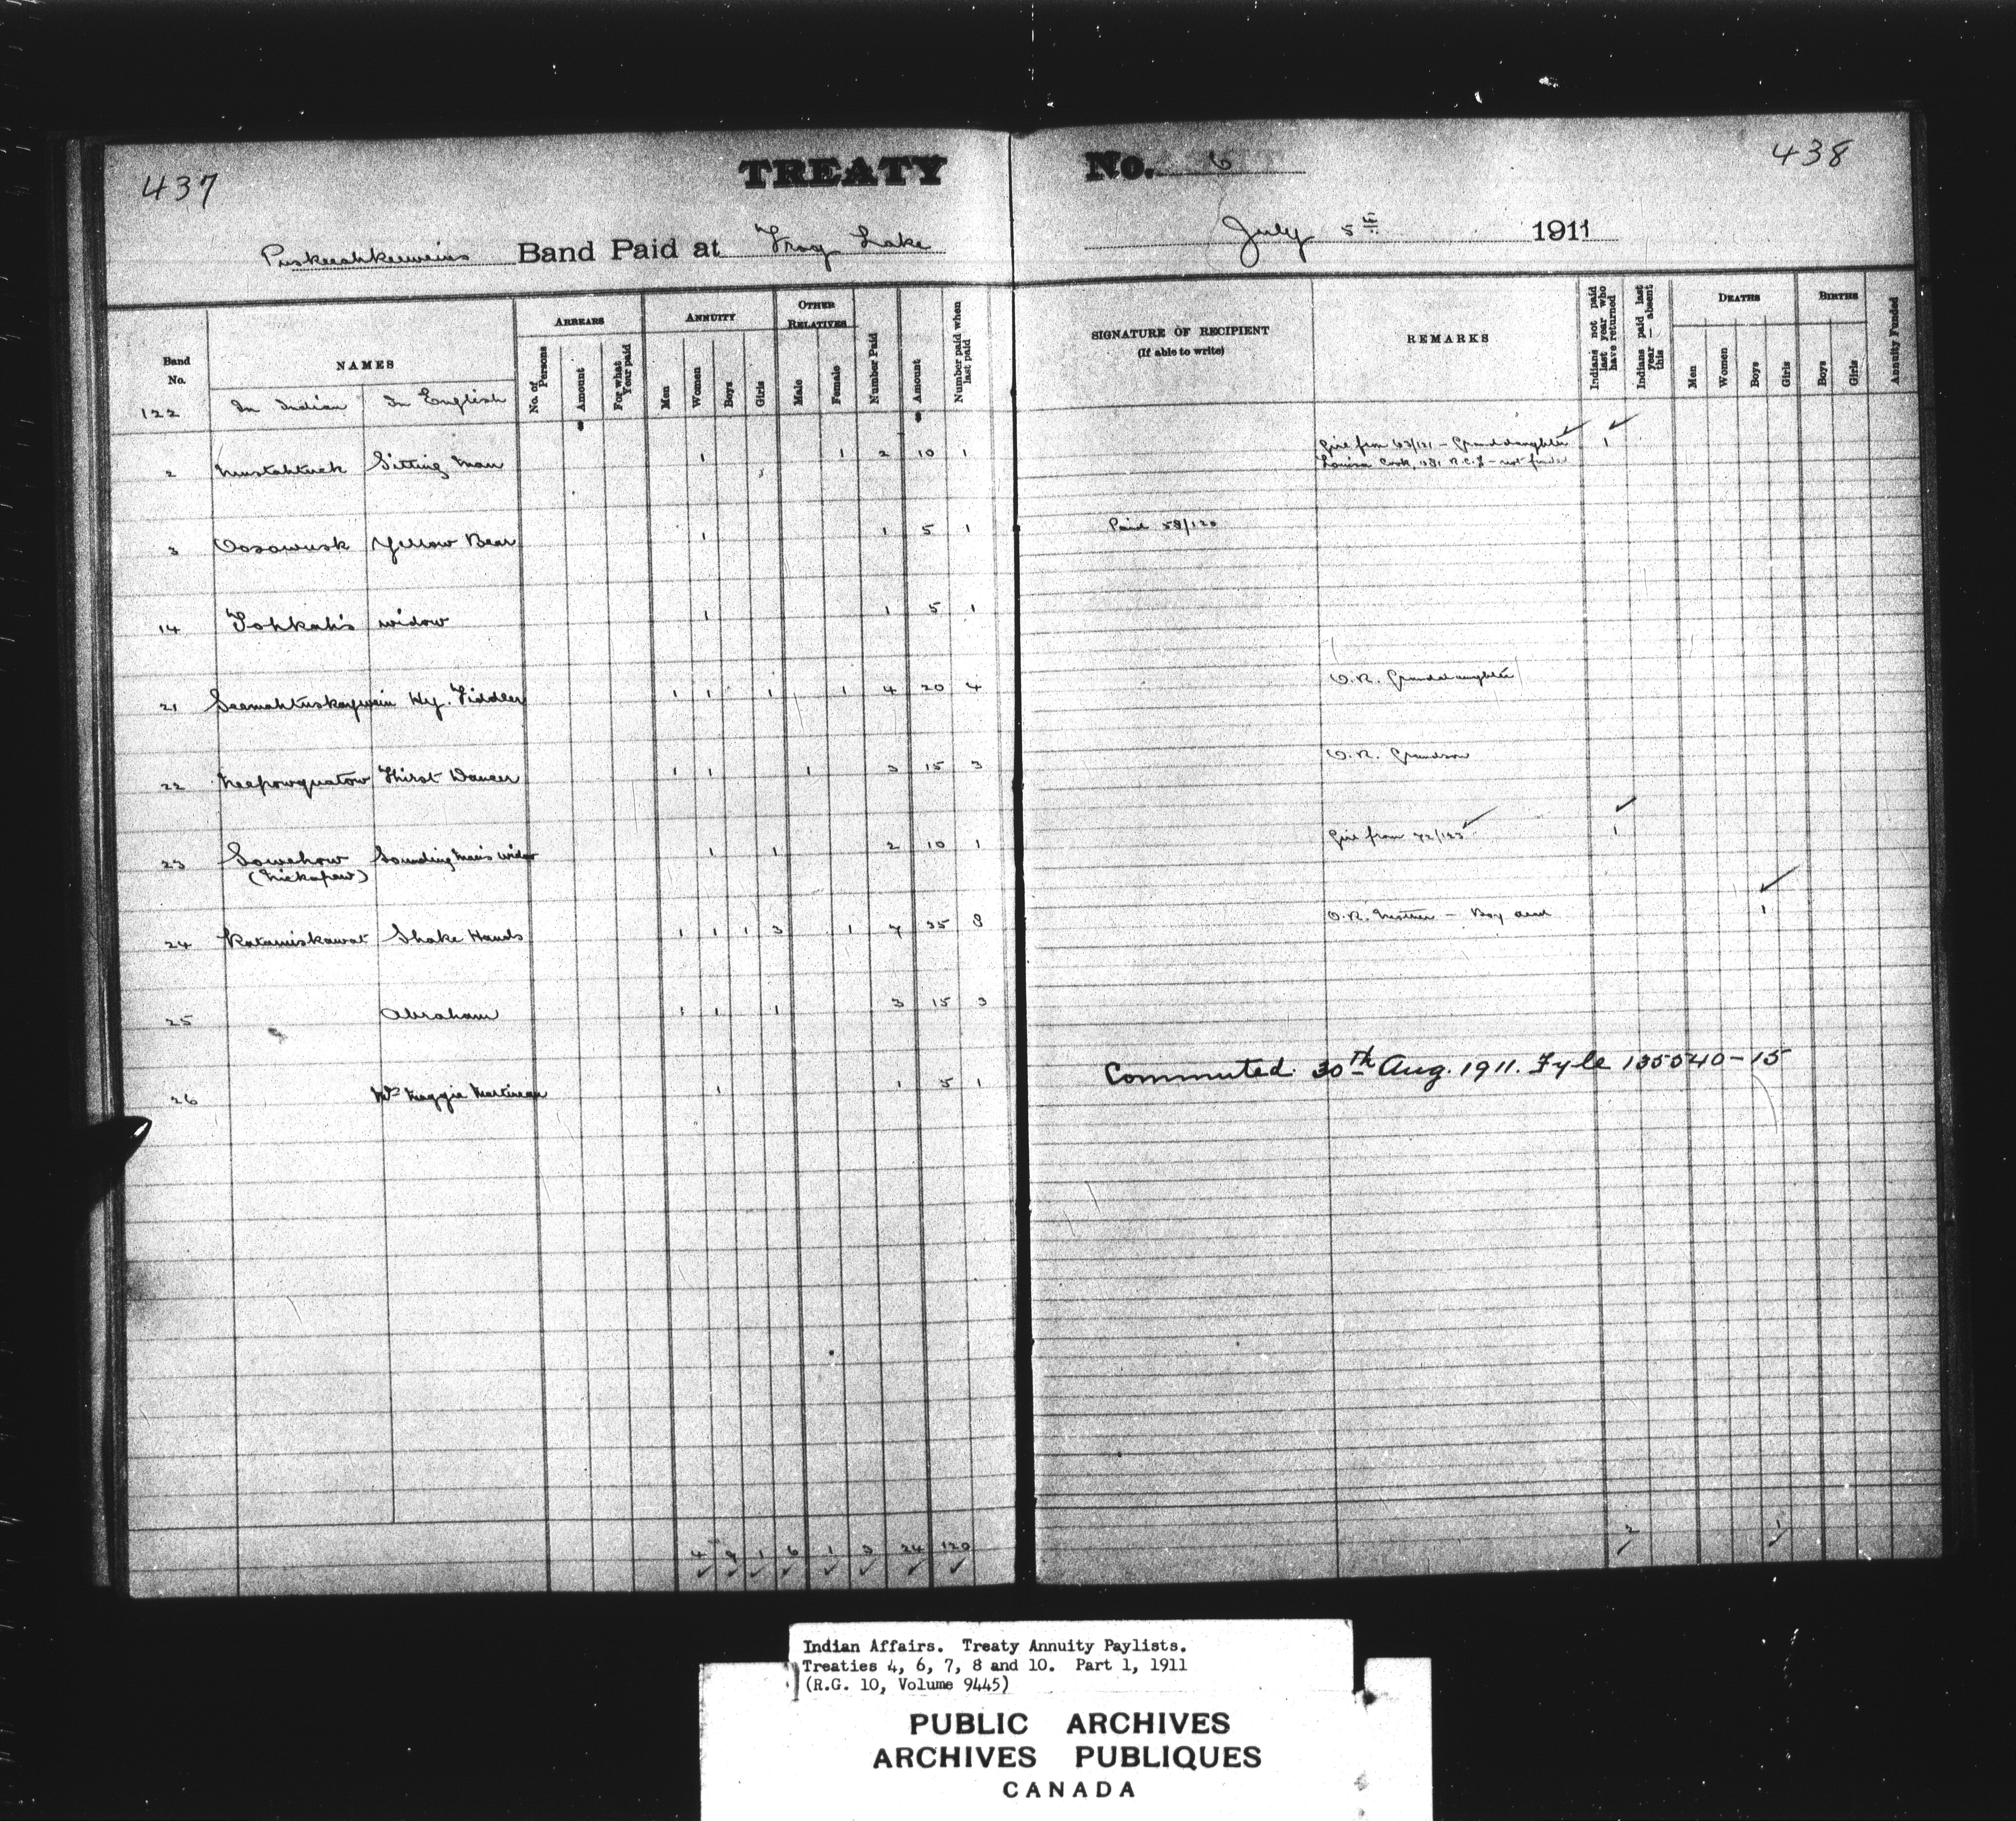 437
TREATY No. 6
438
Puskeeahkeeweins Band Paid at Frog Lake July 5th 1911
Band No.
NAMES
ARREARS
ANNUITY
OTHER RELATIVES
No. of Persons
Amount
For what Year paid
Men
Women
Boys
Girls
Male
Female
Number Paid
Amount
Number paid when last paid
SIGNATURE OF RECIPIENT
(If able to write)
REMARKS
Indians not paid last year who have returned
Indians paid last year — absent this
DEATHS
Men
Women
Boys
Girls
BIRTHS
Boys
Girls
Annuity Funded
122 In Indian In English
2 Mustahtuck Sitting Man 1 1 2 10 1 Girl from 63/121 - Granddaughter 1
Louisa Cook, 181 R.C.L - not
3 Oosawusk Yellow Bear 1 1 5 1 Paid 58/120
14 Tohkah's widow 1 1 5 1
21 Seemahtuskaywein Hy. Fiddler 1 1 1 1 4 20 4 O.R. Granddaughter
22 Neepowquatow Thirst Dancer 1 1 1 3 15 3 O.R. Grandson
23 Sowehow Sounding Man's widow 1 1 2 10 1 Girl from 72/123 1
(Nickapaw)
24 Katamiskawat Shake Hands 1 1 1 3 1 7 35 8 O.R. Mother - Boy dead 1
25 Abraham 1 1 1 3 15 3
26 Mrs Maggie Martineau 1 1 5 1 Commuted. 30th Aug. 1911. Fyle 135540-15
4 9 1 6 1 3 24 120 2 1
Indian Affairs. Treaty Annuity Paylists.
Treaties 4, 6, 7, 8 and 10. Part 1, 1911
(R.G. 10, Volume 9445)
PUBLIC ARCHIVES
ARCHIVES PUBLIQUES
CANADA